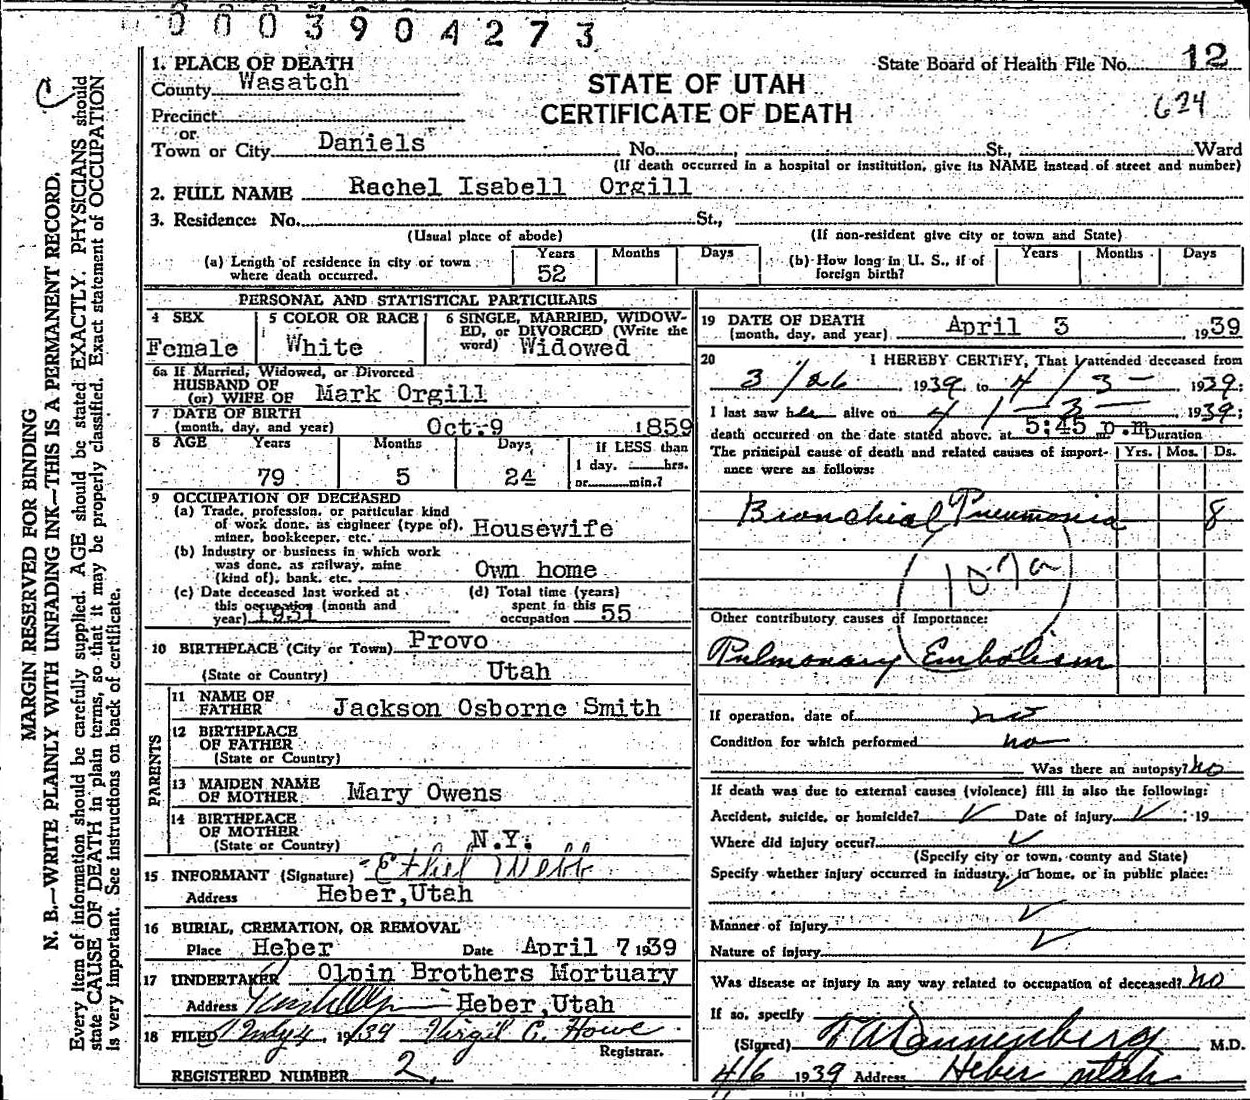 0003904273
1. PLACE OF DEATH
County Wasatch
Precinct
or
Town or City Daniels
STATE OF UTAH
CERTIFICATE OF DEATH
State Board of Health File No. 12
624
No. , St., Ward
(If death occurred in a hospital or institution, give its NAME instead of street and number)
2. FULL NAME Rachel Isabell Orgill
3. Residence: No. St.,
(Usual place of abode) (If non-resident give city or town and State)
(a) Length of residence in city or town where death occurred. Years 52 Months Days
(b) How long in U. S., if of foreign birth? Years Months Days
PERSONAL AND STATISTICAL PARTICULARS
4 SEX Female
5 COLOR OR RACE White
6 SINGLE, MARRIED, WIDOWED, or DIVORCED (Write the word) Widowed
6a If Married, Widowed, or Divorced
HUSBAND OF
(or) WIFE OF Mark Orgill
7 DATE OF BIRTH
(month, day, and year) Oct. 9 1859
8 AGE Years Months Days If LESS than
79 5 24 1 day, hrs.
or min.?
9 OCCUPATION OF DECEASED
(a) Trade, profession, or particular kind
of work done, as engineer (type of),
miner, bookkeeper, etc. Housewife
(b) Industry or business in which work
was done, as railway, mine
(kind of), bank, etc. Own home
(c) Date deceased last worked at
this occupation (month and
year) 1931
(d) Total time (years)
spent in this
occupation 55
10 BIRTHPLACE (City or Town) Provo
(State or Country) Utah
PARENTS
11 NAME OF
FATHER Jackson Osborne Smith
12 BIRTHPLACE
OF FATHER
(State or Country)
13 MAIDEN NAME
OF MOTHER Mary Owens
14 BIRTHPLACE
OF MOTHER
(State or Country) N.Y.
15 INFORMANT (Signature) Ethel Webb
Address Heber, Utah
16 BURIAL, CREMATION, OR REMOVAL
Place Heber Date April 7 1939
17 UNDERTAKER Olpin Brothers Mortuary
Address Heber, Utah
18 FILED 1939 Virgil C. Howe
Registrar.
REGISTERED NUMBER 2.
19 DATE OF DEATH
(month, day, and year) April 3 1939
20 I HEREBY CERTIFY, That I attended deceased from
3/26, 1939 to 4/3- 1939;
I last saw her alive on 4/-3- 1939;
death occurred on the date stated above, at 5:45 p.m. Duration
The principal cause of death and related causes of importance were as follows: Yrs. Mos. Ds.
Bronchial Pneumonia 8
107a
Other contributory causes of importance:
Pulmonary Embolism
If operation, date of no
Condition for which performed no
Was there an autopsy? no
If death was due to external causes (violence) fill in also the following:
Accident, suicide, or homicide? ✓ Date of injury ✓ , 19
Where did injury occur? ✓
(Specify city or town, county and State)
Specify whether injury occurred in industry, in home, or in public place:
Manner of injury ✓
Nature of injury ✓
Was disease or injury in any way related to occupation of deceased? no
If so, specify
(Signed) M.D.
4/6 1939 Address Heber Utah
MARGIN RESERVED FOR BINDING
N. B.—WRITE PLAINLY WITH UNFADING INK—THIS IS A PERMANENT RECORD.
Every item of information should be carefully supplied. AGE should be stated EXACTLY. PHYSICIANS should
state CAUSE OF DEATH in plain terms, so that it may be properly classified. Exact statement of OCCUPATION
is very important. See instructions on back of certificate.